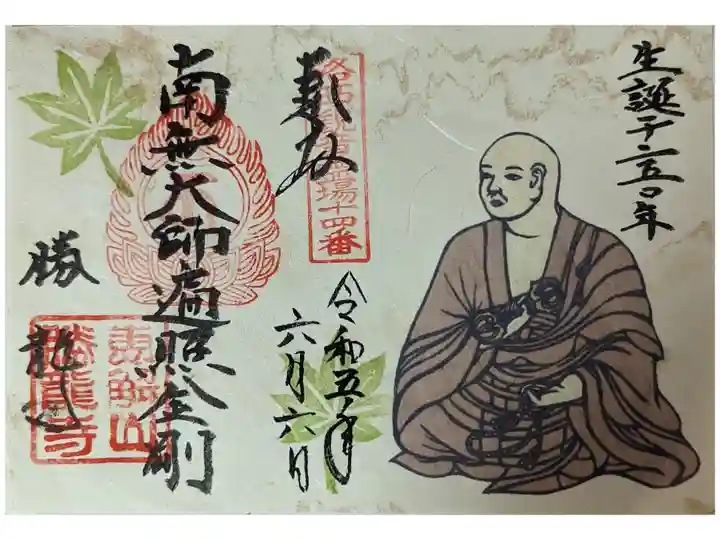 生誕千二五〇年
奉拝
洛西観音霊場十四番
令和五年
六月六日
南無大師遍照金剛
勝龍寺
恵解山
勝龍寺